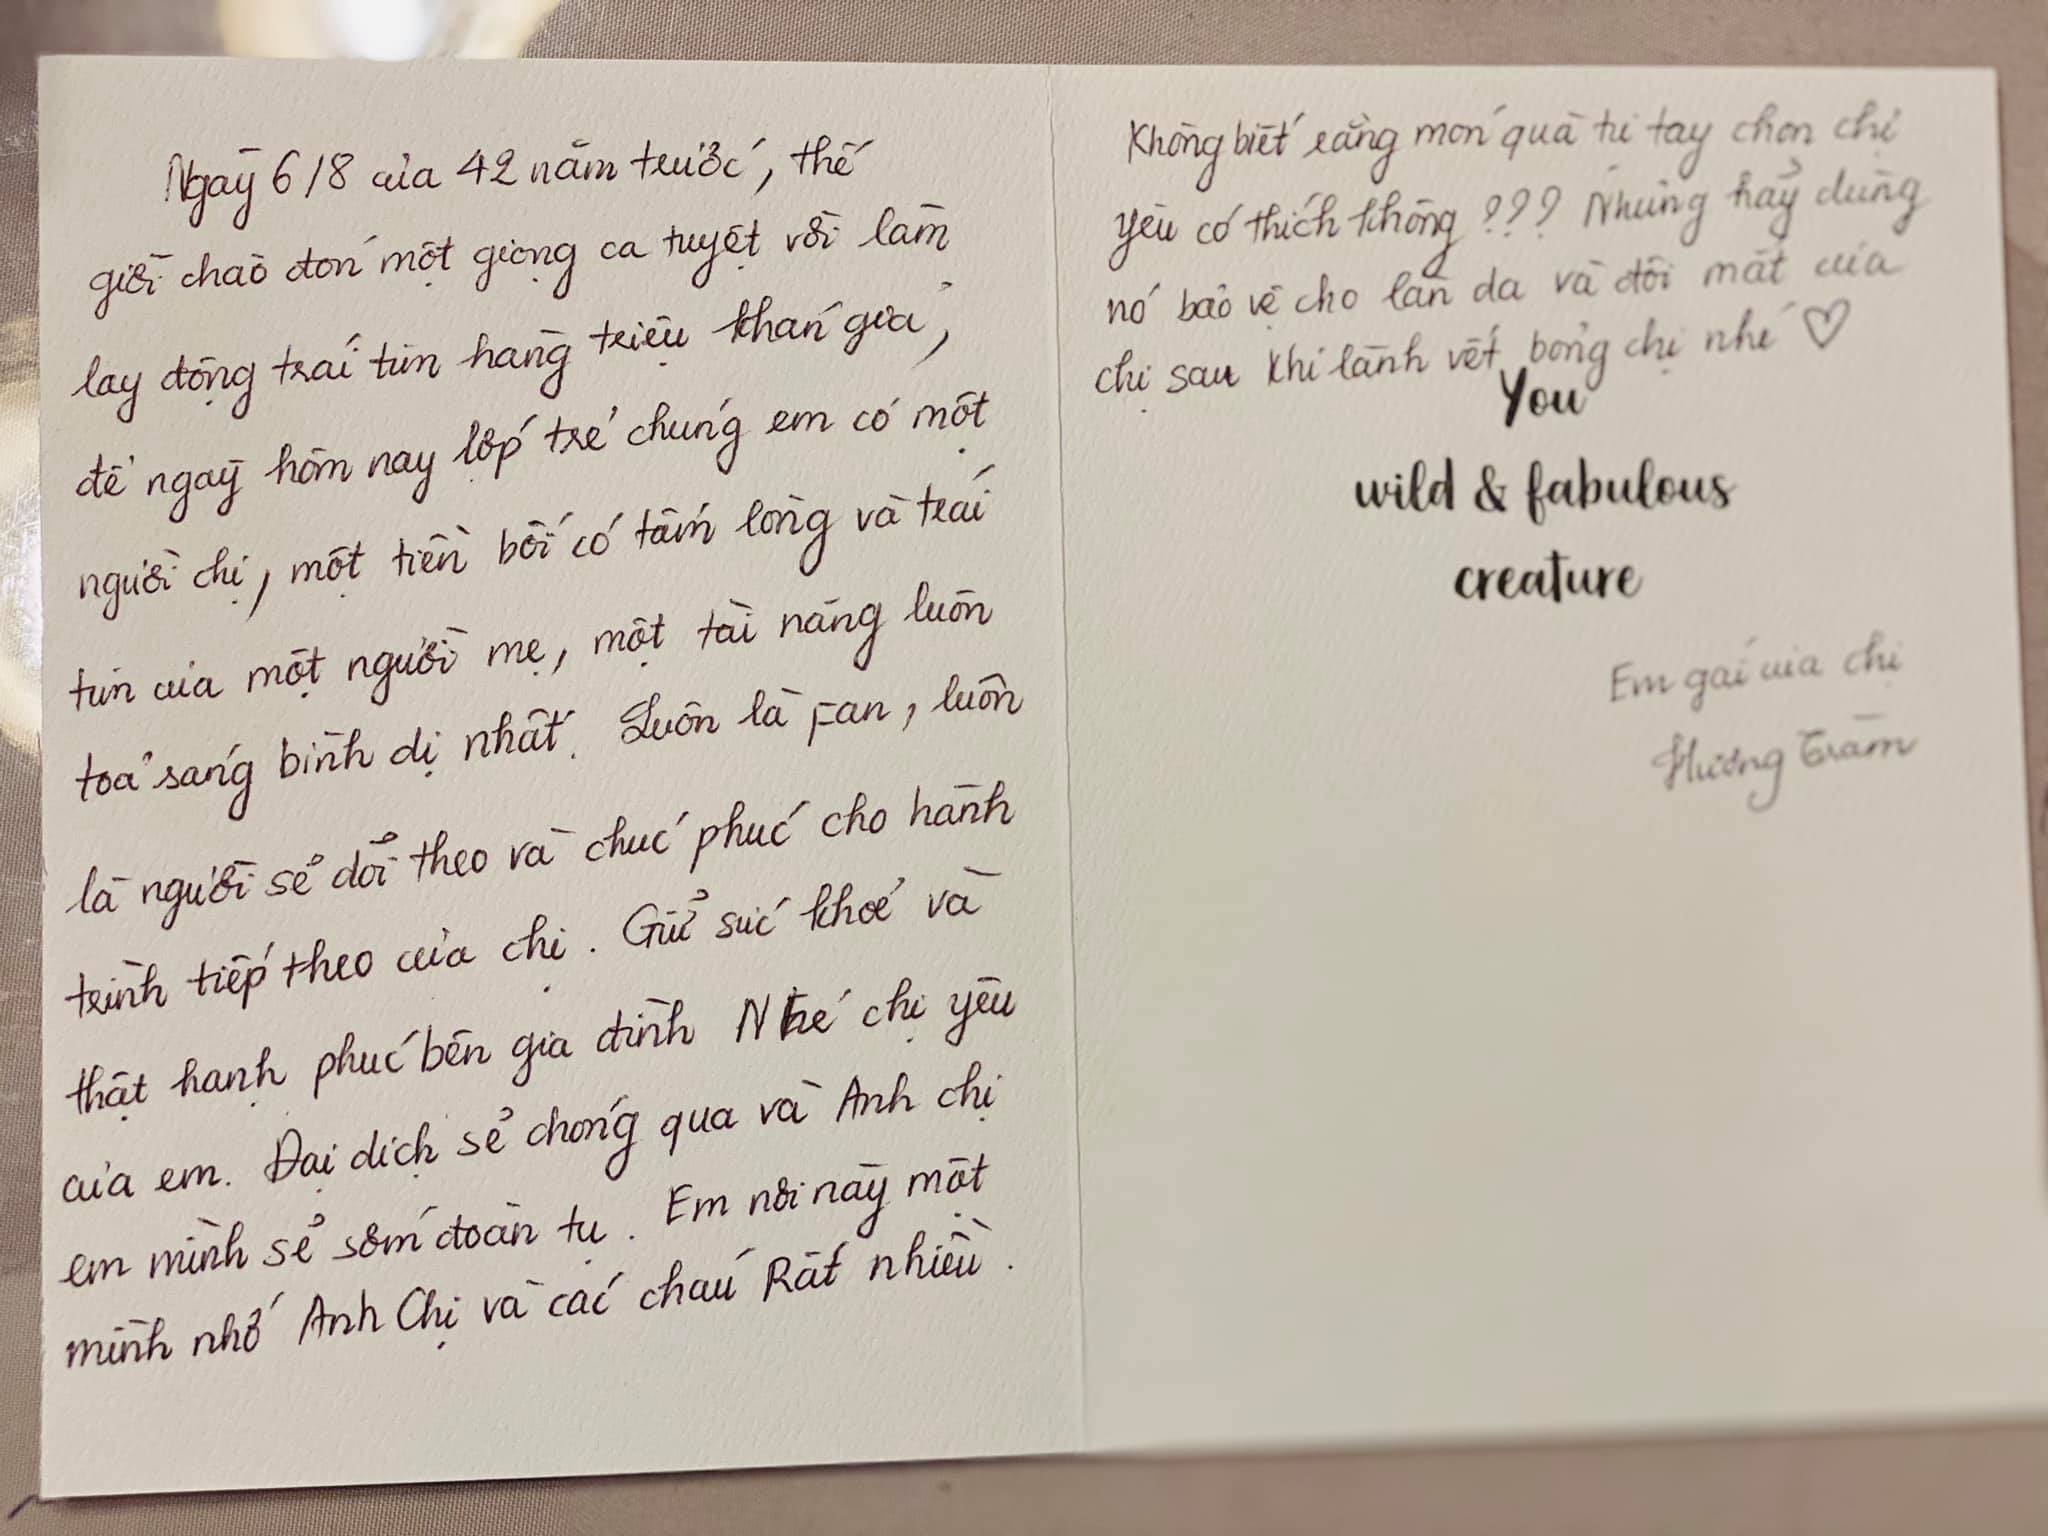 Ngày 6/8 của 42 năm trước, thế
giới chào đón một giọng ca tuyệt vời làm
lay động trái tim hàng triệu khán giả,
để ngày hôm nay lớp trẻ chúng em có một
người chị, một tiền bối có tấm lòng và trái
tim của một người mẹ, một tài năng luôn
toả sáng bình dị nhất. Luôn là Fan, luôn
là người sẻ dỏi theo và chúc phúc cho hành
trình tiếp theo của chị. Giử sức khoẻ và
thật hạnh phúc bên gia đình Nhé chị yêu
của em. Đại dịch sẻ chóng qua và Anh chị
em mình sẻ sớm đoàn tụ. Em nơi này một
mình nhớ Anh Chị và các cháu Rất nhiều.
Không biết rằng món quà tự tay chọn chị
yêu có thích không ??? Nhưng hảy dùng
nó bảo vệ cho làn da và đôi mắt của
chị sau khi lành vết bỏng chị nhé ♡
You
wild & fabulous
creature
Em gái của chị
Hương Tràm